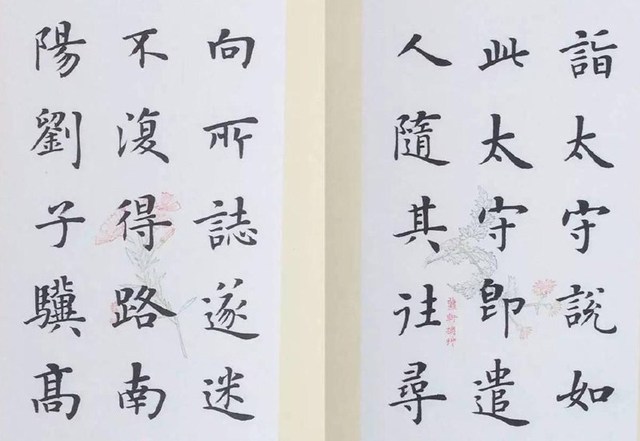 詣太守說如
此太守即遣
人隨其往尋
向所誌遂迷
不復得路南
陽劉子驥高